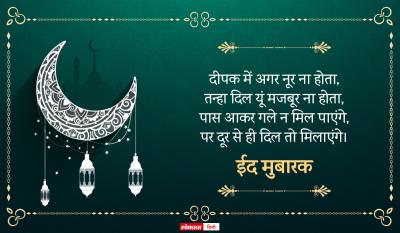 दीपक में अगर नूर ना होता,
तन्हा दिल यूं मजबूर ना होता,
पास आकर गले न मिल पाएंगे,
पर दूर से ही दिल तो मिलाएंगे।
ईद मुबारक
लोकमत हिन्दी